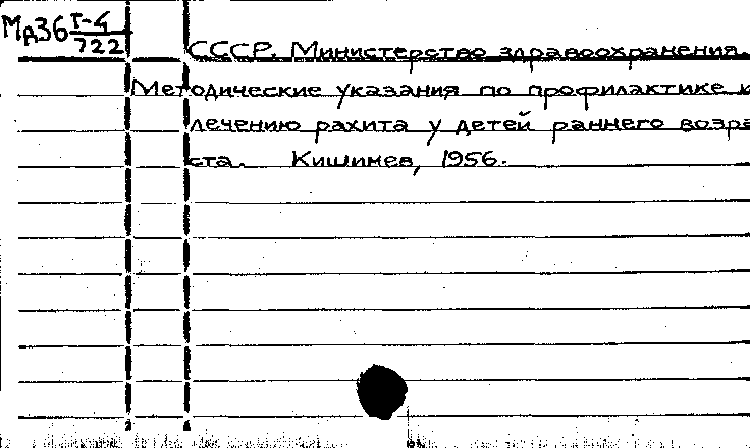 Мд36 Г-4
722
СССР. Министерство здравоохранения.
Методические указания по профилактике и
лечению рахита у детей раннего возра
ста. Кишинев, 1956.